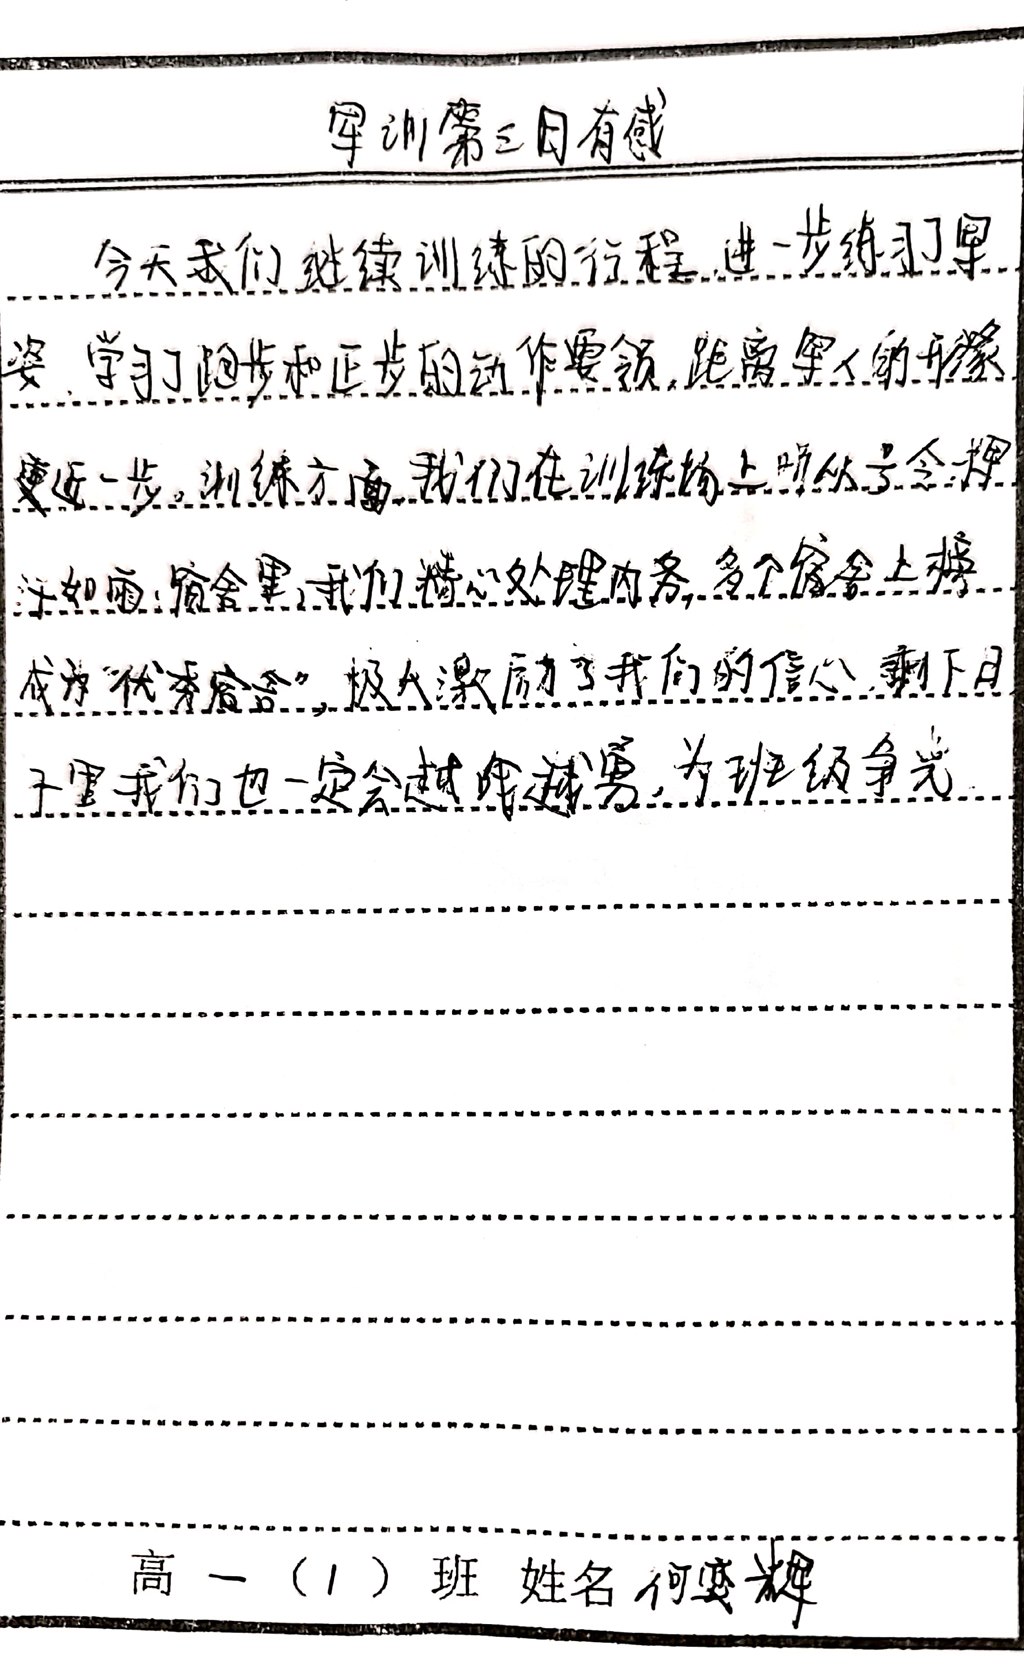 军训第三日有感
今天我们继续训练的行程,进一步练习了军
姿,学习了跑步和正步的动作要领,距离军人的形象
更近一步。训练方面,我们在训练场上听从号令,挥
汗如雨;宿舍里,我们精心处理内务,多个宿舍上榜
成为“优秀宿舍”,极大激励了我们的信心,剩下日
子里我们也一定会越战越勇,为班级争光.
高一(1)班 姓名 何奕辉